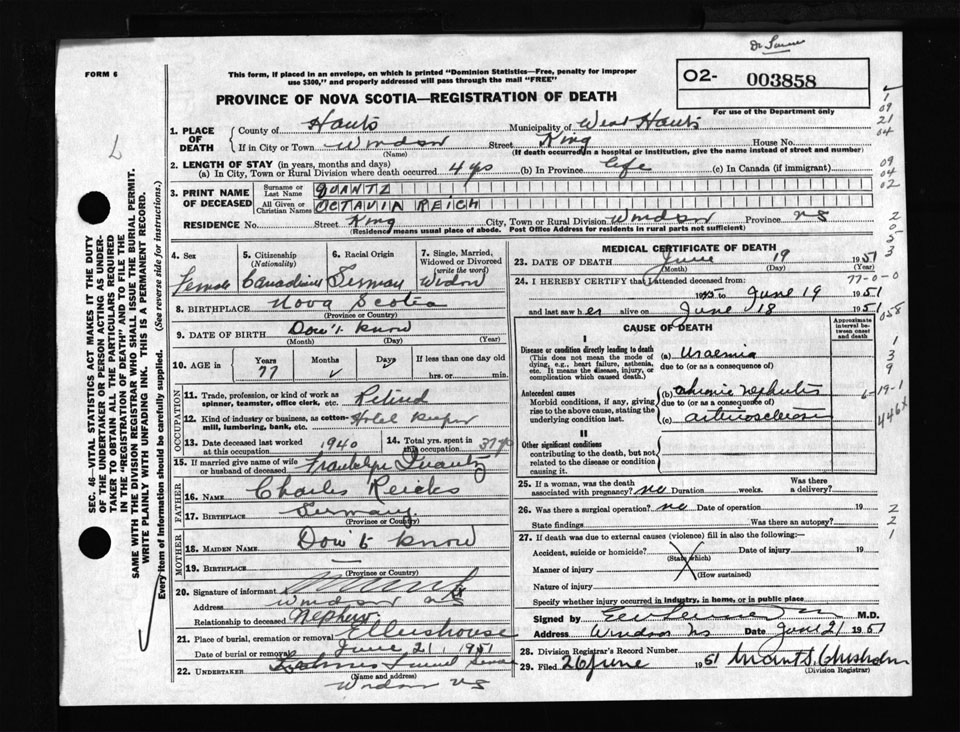 FORM 6
This form, if placed in an envelope, on which is printed "Dominion Statistics—Free, penalty for improper
use $300," and properly addressed will pass through the mail "FREE"
02- 003858
PROVINCE OF NOVA SCOTIA—REGISTRATION OF DEATH
For use of the Department only
1. PLACE OF DEATH
County of Hants Municipality of West Hants
If in City or Town Windsor Street King House No.
(Name) (If death occurred in a hospital or institution, give the name instead of street and number)
2. LENGTH OF STAY (in years, months and days)
(a) In City, Town or Rural Division where death occurred 4 yrs (b) In Province life (c) In Canada (if immigrant)
3. PRINT NAME OF DECEASED
Surname or Last Name QUANTZ
All Given or Christian Names OCTAVIA REICH
RESIDENCE No. Street King City, Town or Rural Division Windsor Province NS
(Residence means usual place of abode. Post Office Address for residents in rural parts not sufficient)
4. Sex 5. Citizenship (Nationality) 6. Racial Origin 7. Single, Married, Widowed or Divorced (write the word)
Female Canadian German Widow
8. BIRTHPLACE Nova Scotia
(Province or Country)
9. DATE OF BIRTH Don't know
(Month) (Day) (Year)
10. AGE Years Months Days If less than one day old
77 hrs. or min.
OCCUPATION
11. Trade, profession, or kind of work as spinner, teamster, office clerk, etc. Retired
12. Kind of industry or business, as cotton-mill, lumbering, bank, etc. Hotel Keeper
13. Date deceased last worked at this occupation 1940 14. Total yrs. spent in this occupation 37 yrs
15. If married give name of wife or husband of deceased Quantz
FATHER
16. NAME Charles
17. BIRTHPLACE Germany
(Province or Country)
MOTHER
18. MAIDEN NAME Don't know
19. BIRTHPLACE —
(Province or Country)
20. Signature of informant
Address Windsor NS
Relationship to deceased Nephew
21. Place of burial, cremation or removal Ellershouse
Date of burial or removal June 21, 1951
22. UNDERTAKER
(Name and Address)
Windsor NS
MEDICAL CERTIFICATE OF DEATH
23. DATE OF DEATH June 19 1951
(Month) (Day) (Year)
24. I HEREBY CERTIFY that I attended deceased from 77-0-0
to June 19 1951
and last saw her alive on June 18 1951
CAUSE OF DEATH
Approximate interval between onset and death
I
Disease or condition directly leading to death
(This does not mean the mode of dying, e.g., heart failure, asthenia, etc. It means the disease, injury, or complication which caused death.)
(a) Uraemia
due to (or as a consequence of)
Antecedent causes
Morbid conditions, if any, giving rise to the above cause, stating the underlying condition last.
(b) chronic nephritis
due to (or as a consequence of)
(c) arteriosclerosis
II
Other significant conditions
contributing to the death, but not related to the disease or condition causing it.
25. If a woman, was the death associated with pregnancy? no Duration weeks. Was there a delivery?
26. Was there a surgical operation? no Date of operation 19
State findings Was there an autopsy?
27. If death was due to external causes (violence) fill in also the following:—
Accident, suicide or homicide? Date of injury 19
(State which)
Manner of injury
(How sustained)
Nature of injury
Specify whether injury occurred in industry, in home, or in public place
Signed by M.D.
Address Windsor NS Date June 21 1951
28. Division Registrar's Record Number
29. Filed 26 June 1951 Chisholm
(Division Registrar)
SEC. 46—VITAL STATISTICS ACT MAKES IT THE DUTY
OF THE UNDERTAKER OR PERSON ACTING AS UNDER-
TAKER TO OBTAIN ALL THE PARTICULARS REQUIRED
IN THE "REGISTRATION OF DEATH" AND TO FILE THE
SAME WITH THE DIVISION REGISTRAR WHO SHALL ISSUE THE BURIAL PERMIT.
WRITE PLAINLY WITH UNFADING INK. THIS IS A PERMANENT RECORD.
Every item of information should be carefully supplied. (See reverse side for instructions.)
1
09
21
04
09
04
02
2
0
5
3
058
1
3
9
6-19-1
446X
2
2
1